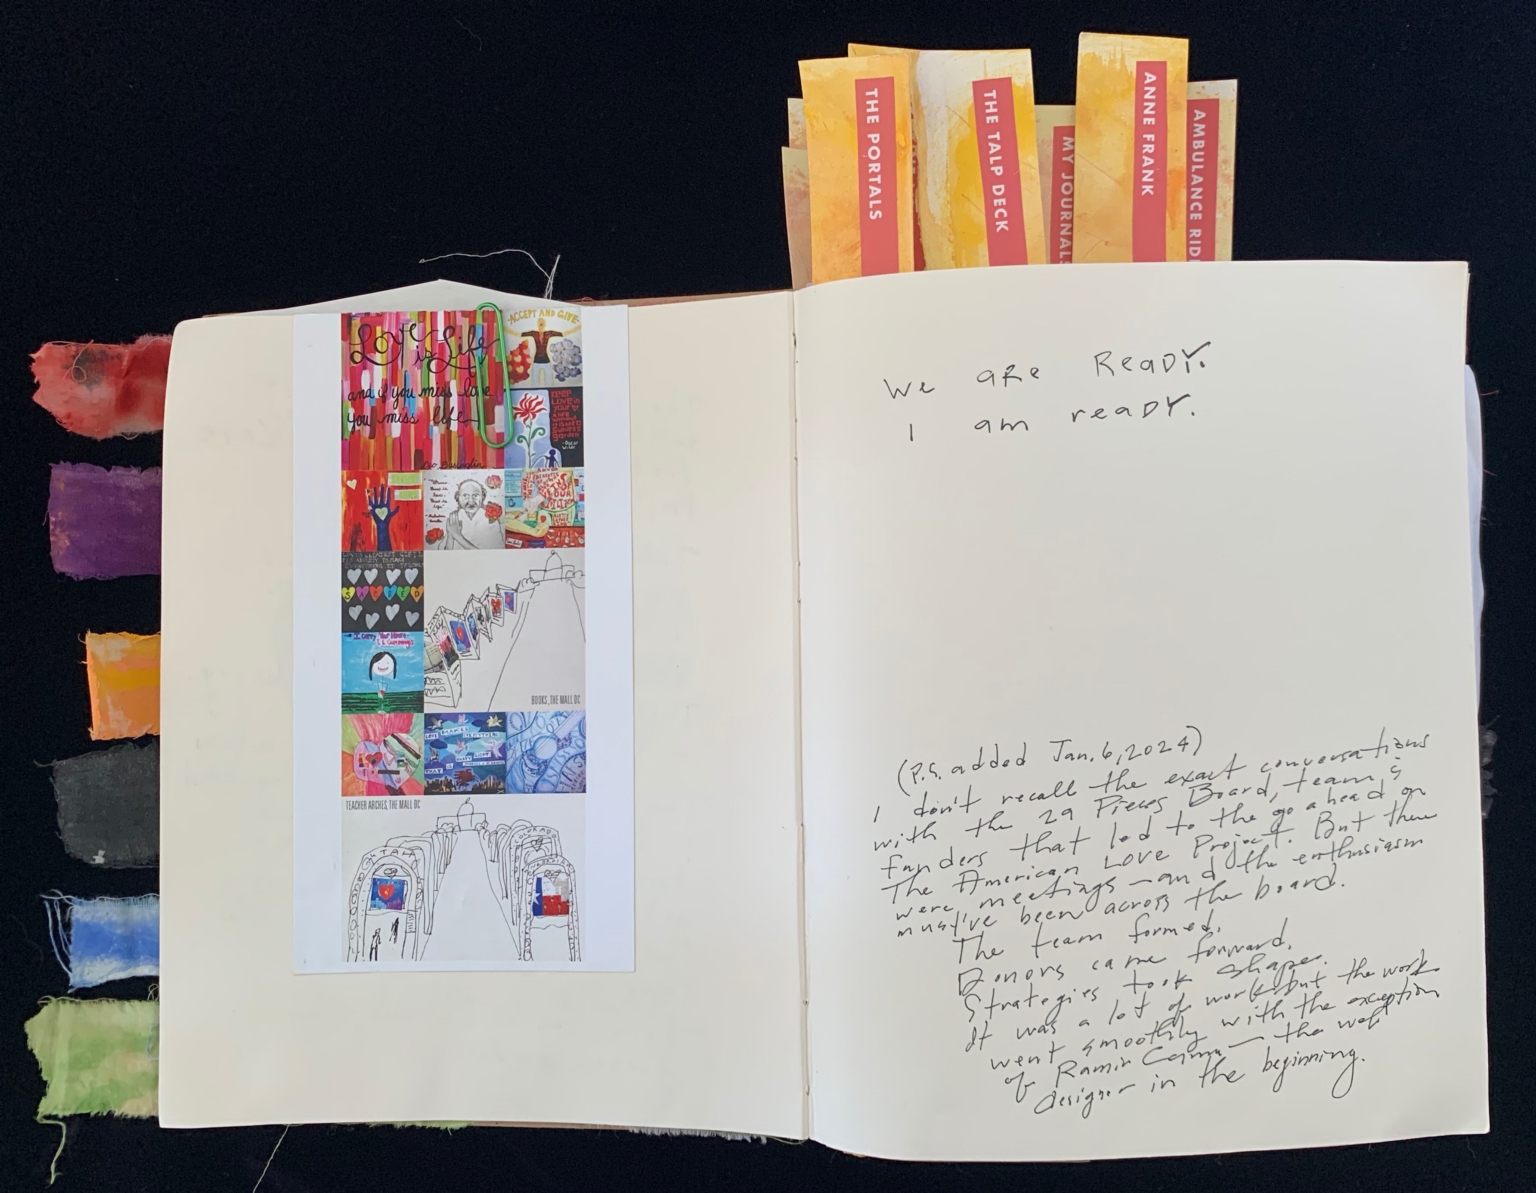 THE PORTALS
THE TALP DECK
MY JOURNALS
ANNE FRANK
AMBULANCE RID
Love is Life
and if you miss love
you miss life
Leo Buscaglia
ACCEPT AND GIVE
KEEP
LOVE in
your
I Carry Your Heart
E.E. Cummings
BOOKS, THE MALL DC
TEACHER ARCHES, THE MALL DC
UTAH
COLORADO
We are Ready.
I am ready.
(P.S. added Jan. 6, 2024)
I don't recall the exact conversations
with the 29 Pieces Board, team, &
funders that led to the go ahead on
The American Love Project. But there
were meetings – and the enthusiasm
must've been across the board.
The team formed.
Donors came forward.
Strategies took shape.
It was a lot of work but the work
went smoothly with the exception
of Ramin – the web
designer in the beginning.